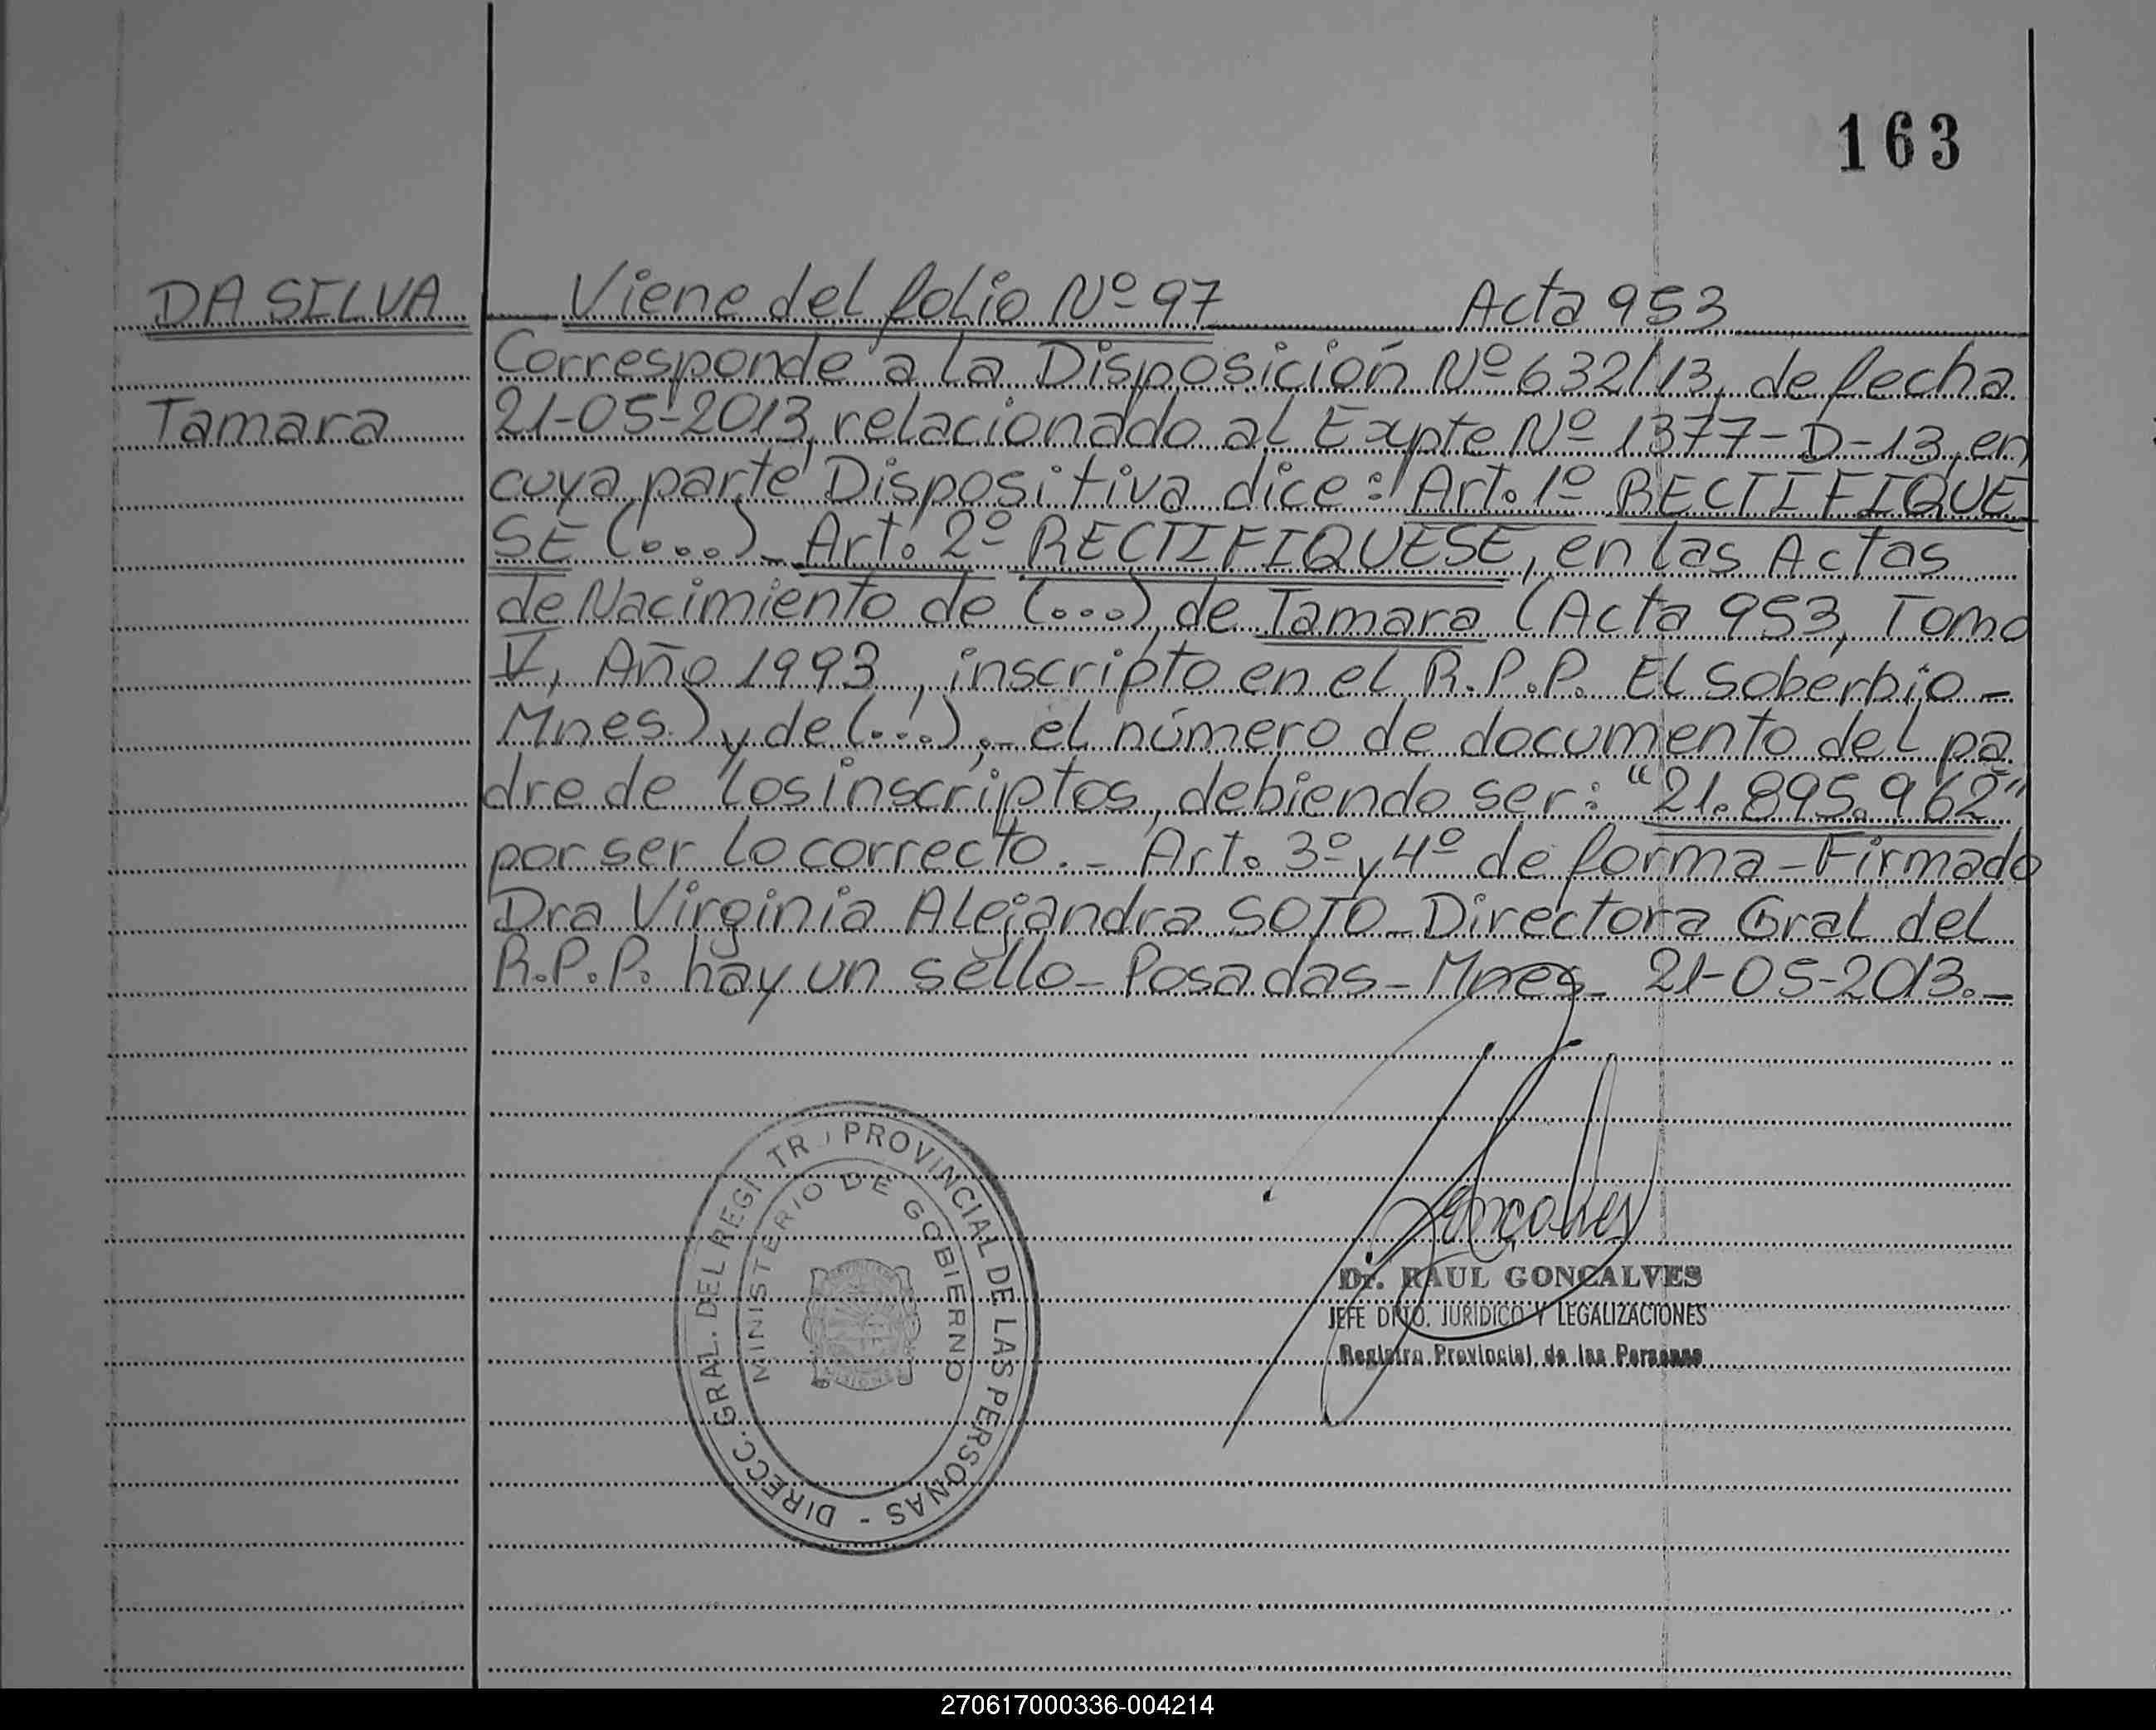 163
DA SILVA Viene del folio Nº 97 Acta 953
Corresponde a la Disposición Nº 632/13, de fecha
Tamara 21-05-2013, relacionado al Expte Nº 1377-D-13, en
cuya parte Dispositiva dice: Art. 1º RECTIFIQUE
SE (...)- Art. 2º RECTIFIQUESE, en las Actas
de Nacimiento de (...), de Tamara (Acta 953, Tomo
V, Año 1993, inscripto en el R.P.P. El Soberbio-
Mnes.) y de (...),- el número de documento del pa
dre de los inscriptos, debiendo ser: "21.895.962"
por ser lo correcto.- Art. 3º y 4º de forma-Firmado
Dra Virginia Alejandra SOTO-Directora Gral del
R.P.P. hay un sello-Posadas-Mnes- 21-05-2013.-
DIRECC. GRAL. DEL REGI TR PROVINCIAL DE LAS PERSONAS -
MINISTERIO DE GOBIERNO
Goncalves
Dr. RAUL GONCALVES
JEFE DPTO. JURIDICO Y LEGALIZACIONES
Registro Provincial de las Personas
270617000336-004214